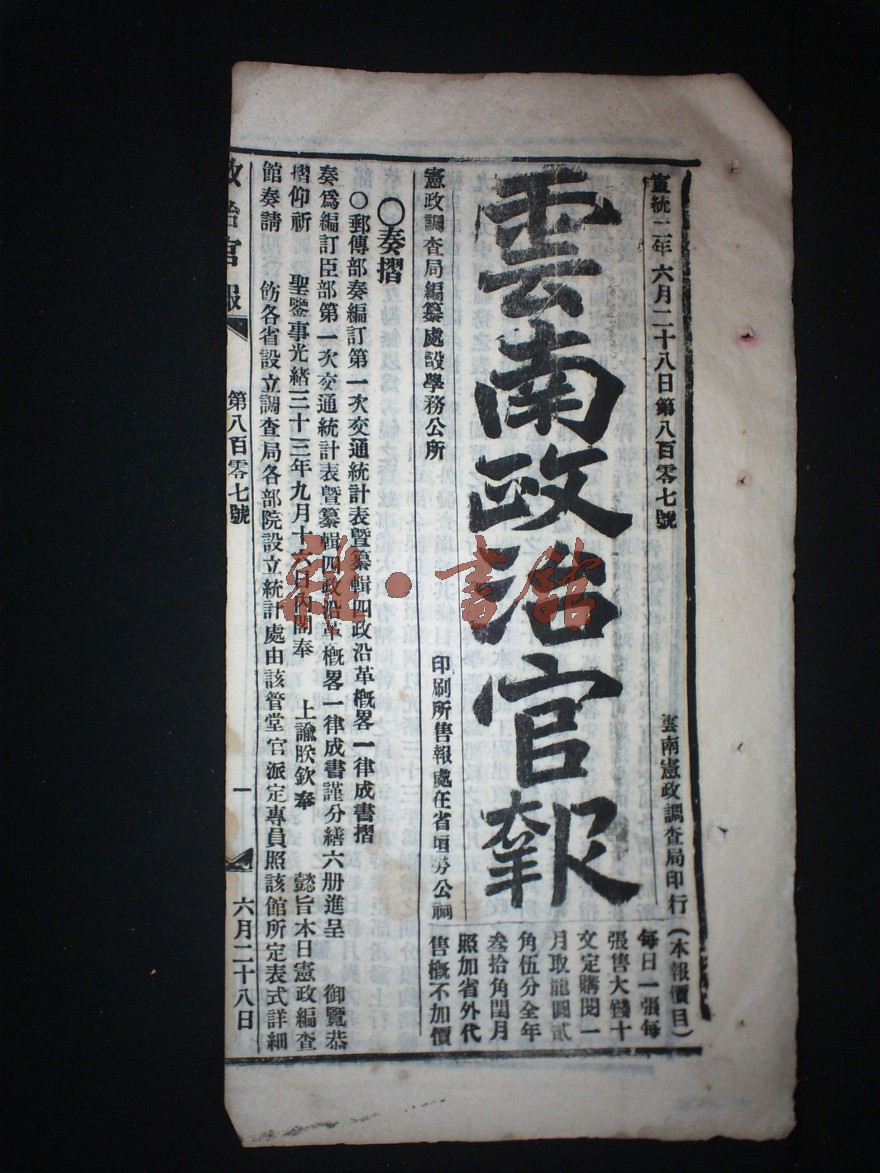 宣統二年六月二十八日第八百零七號
雲南憲政調查局印行
雲南政治官報
(本報價目)
每日一張每
張售大錢十
文定購閱一
月取龍圓貳
角伍分全年
叁拾角閏月
照加省外代
售概不加價
憲政調查局編纂處設學務公所
印刷所售報處在省垣勞公祠
〇奏摺
〇郵傳部奏編訂第一次交通統計表曁纂輯四政沿革槪畧一律成書摺
奏爲編訂臣部第一次交通統計表曁纂輯四政沿革槪畧一律成書謹分繕六册進呈 御覽恭
摺仰祈 聖鑒事光緒三十三年九月十六日內閣奉 上諭朕欽奉 懿旨本日憲政編查
館奏請 飭各省設立調查局各部院設立統計處由該管堂官派定專員照該館所定表式詳細
政治官報
第八百零七號
一
六月二十八日
雜·書館